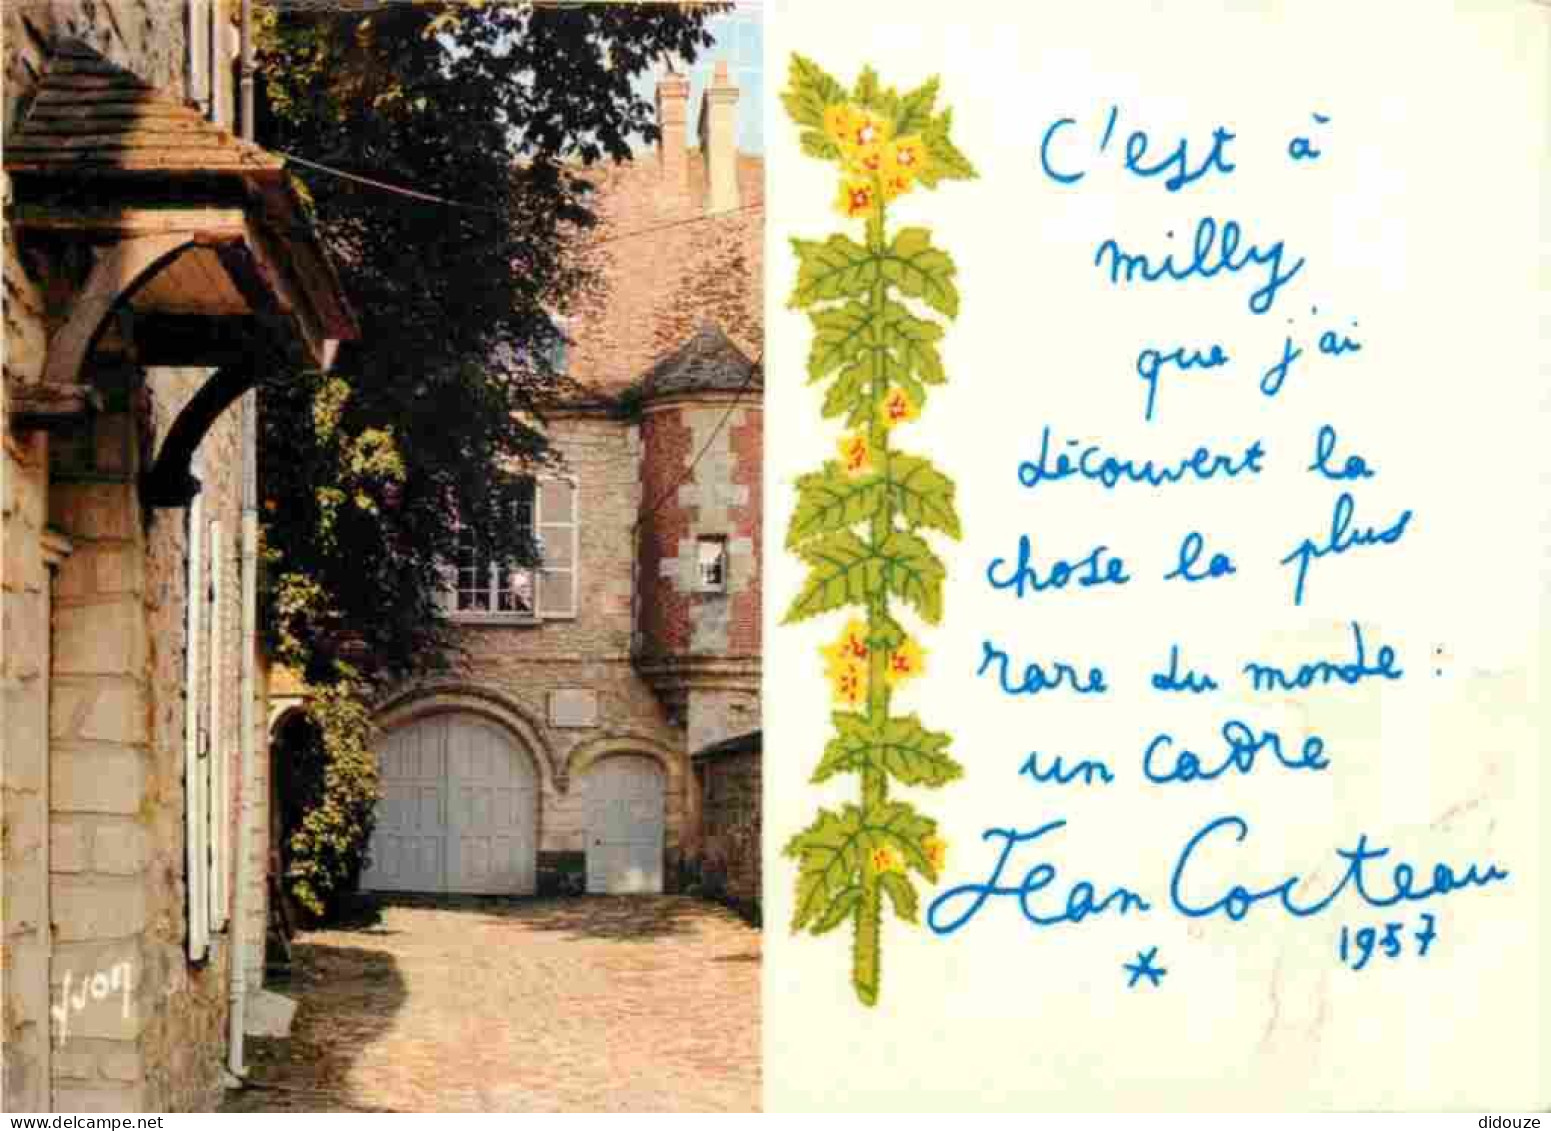 C'est à
milly
que j'ai
découvert la
chose la plus
rare du monde :
un cadre
Jean Cocteau
* 1957
yvon
didouze